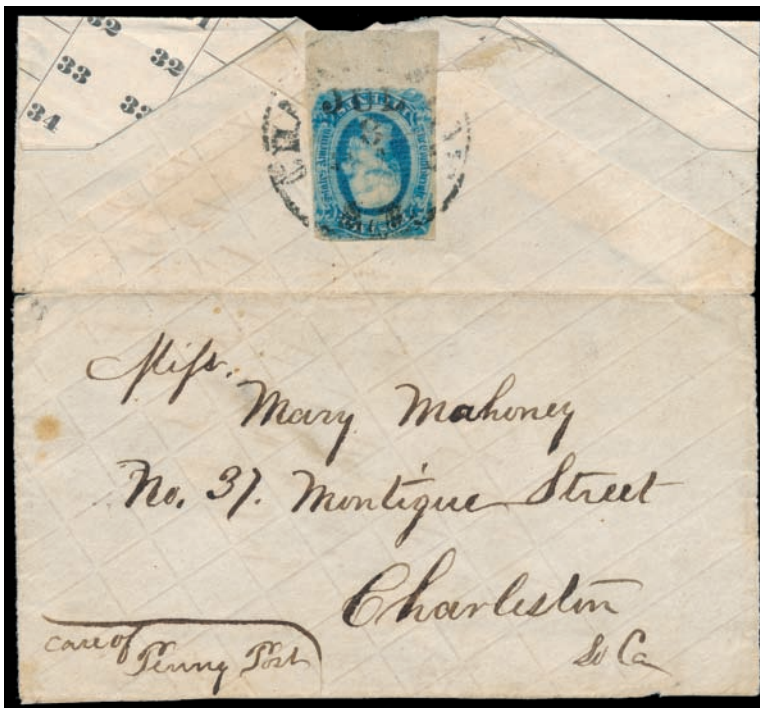 32
31
33
32
34
33
Miss.
Mary Mahoney
No. 37. Montigue Street
Charleston
So Ca
care of
Penny Post